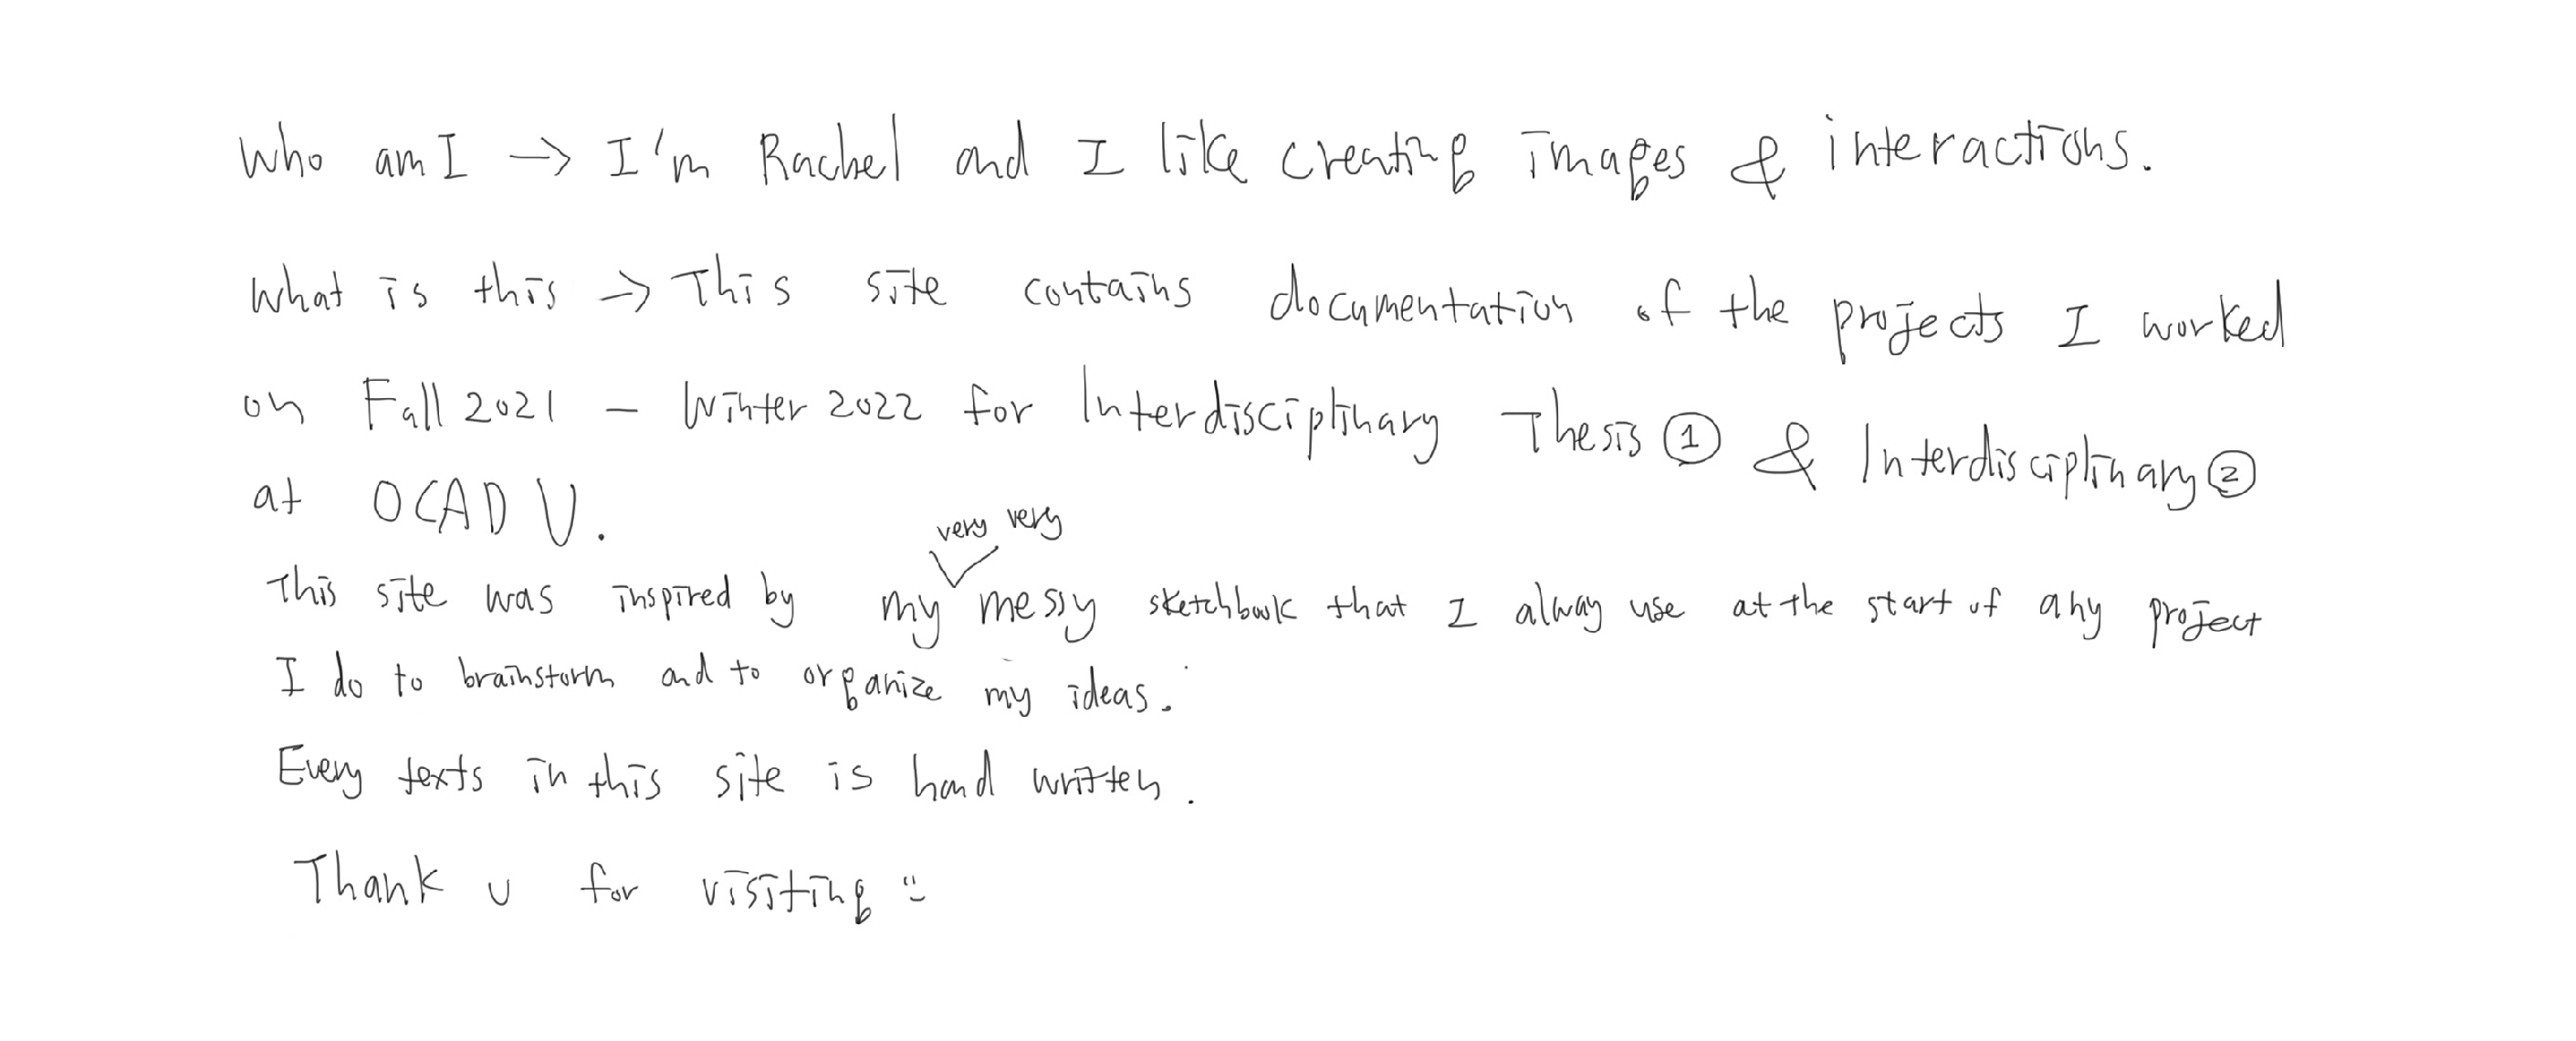 Who am I → I'm Rachel and I like creating images & interactions.
What is this → This site contains documentation of the projects I worked
on Fall 2021 - Winter 2022 for Interdisciplinary Thesis ① & Interdisciplinary ②
at OCAD U.
very very
This site was inspired by my messy sketchbook that I alway use at the start of any project
I do to brainstorm and to organize my ideas.
Every texts in this site is hand written.
Thank u for visiting :)